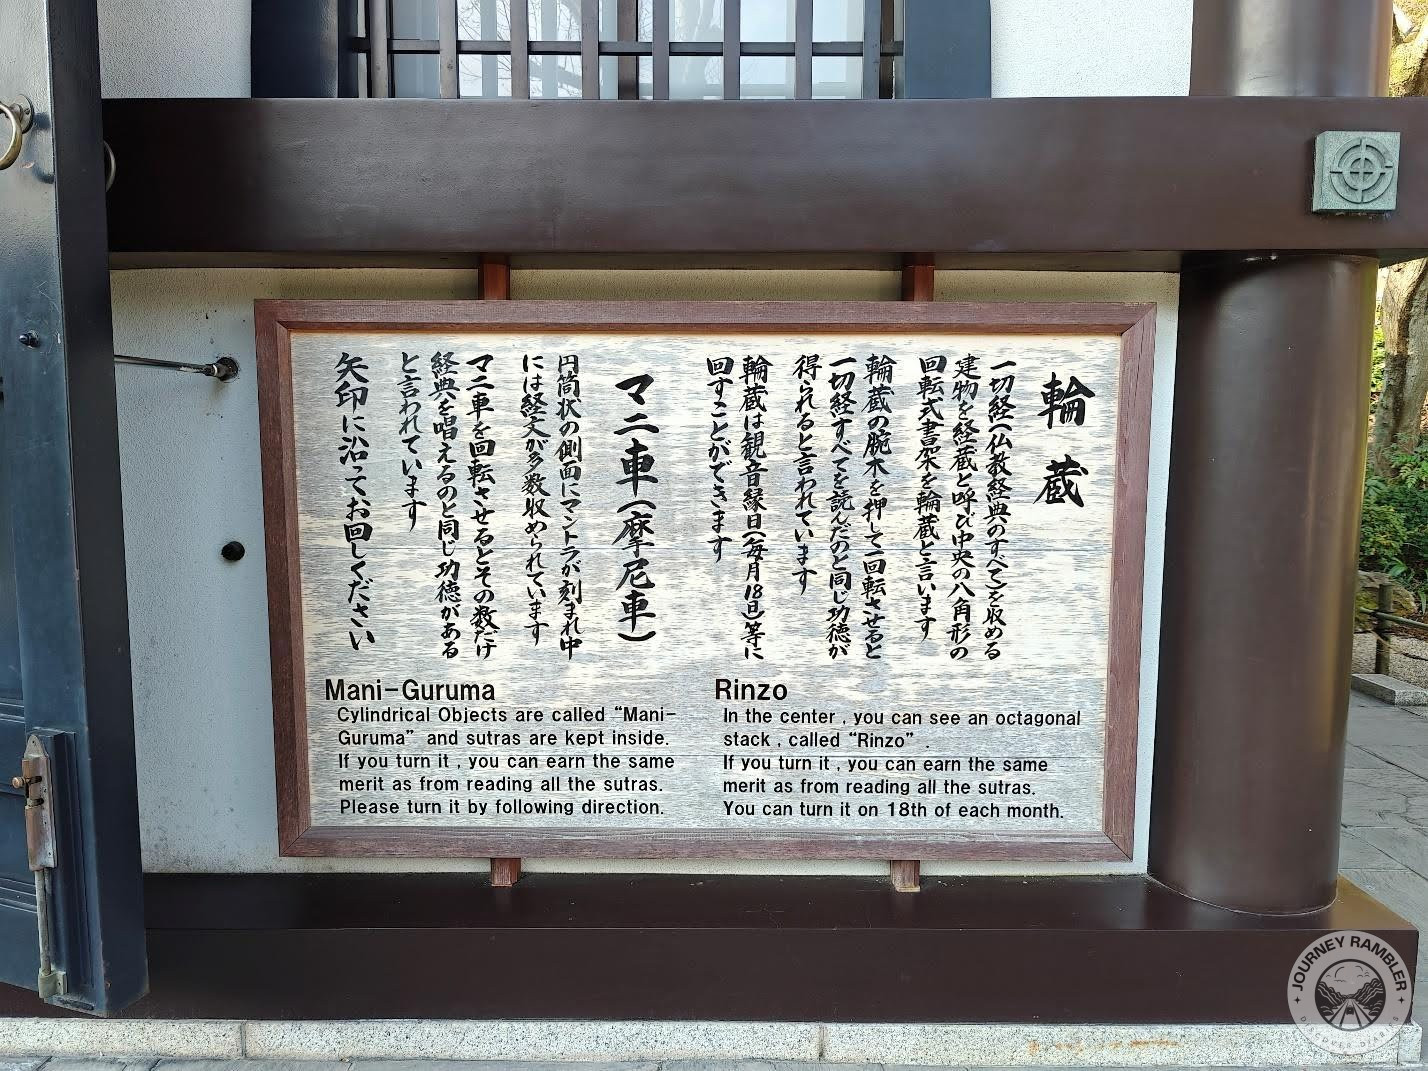 輪蔵
一切経(仏教経典のすべて)を収める
建物を経蔵と呼び中央の八角形の
回転式書架を輪蔵と言います
輪蔵の腕木を押して一回転させると
一切経すべてを読んだのと同じ功徳が
得られると言われています
輪蔵は観音縁日(毎月18日)等に
回すことができます
マニ車(摩尼車)
円筒状の側面にマントラが刻まれ中
には経文が多数収められています
マニ車を回転させるとその数だけ
経典を唱えるのと同じ功徳がある
と言われています
矢印に沿ってお回しください
Mani-Guruma
Cylindrical Objects are called “Mani-
Guruma” and sutras are kept inside.
If you turn it , you can earn the same
merit as from reading all the sutras.
Please turn it by following direction.
Rinzo
In the center , you can see an octagonal
stack , called “Rinzo” .
If you turn it , you can earn the same
merit as from reading all the sutras.
You can turn it on 18th of each month.
JOURNEY RAMBLER